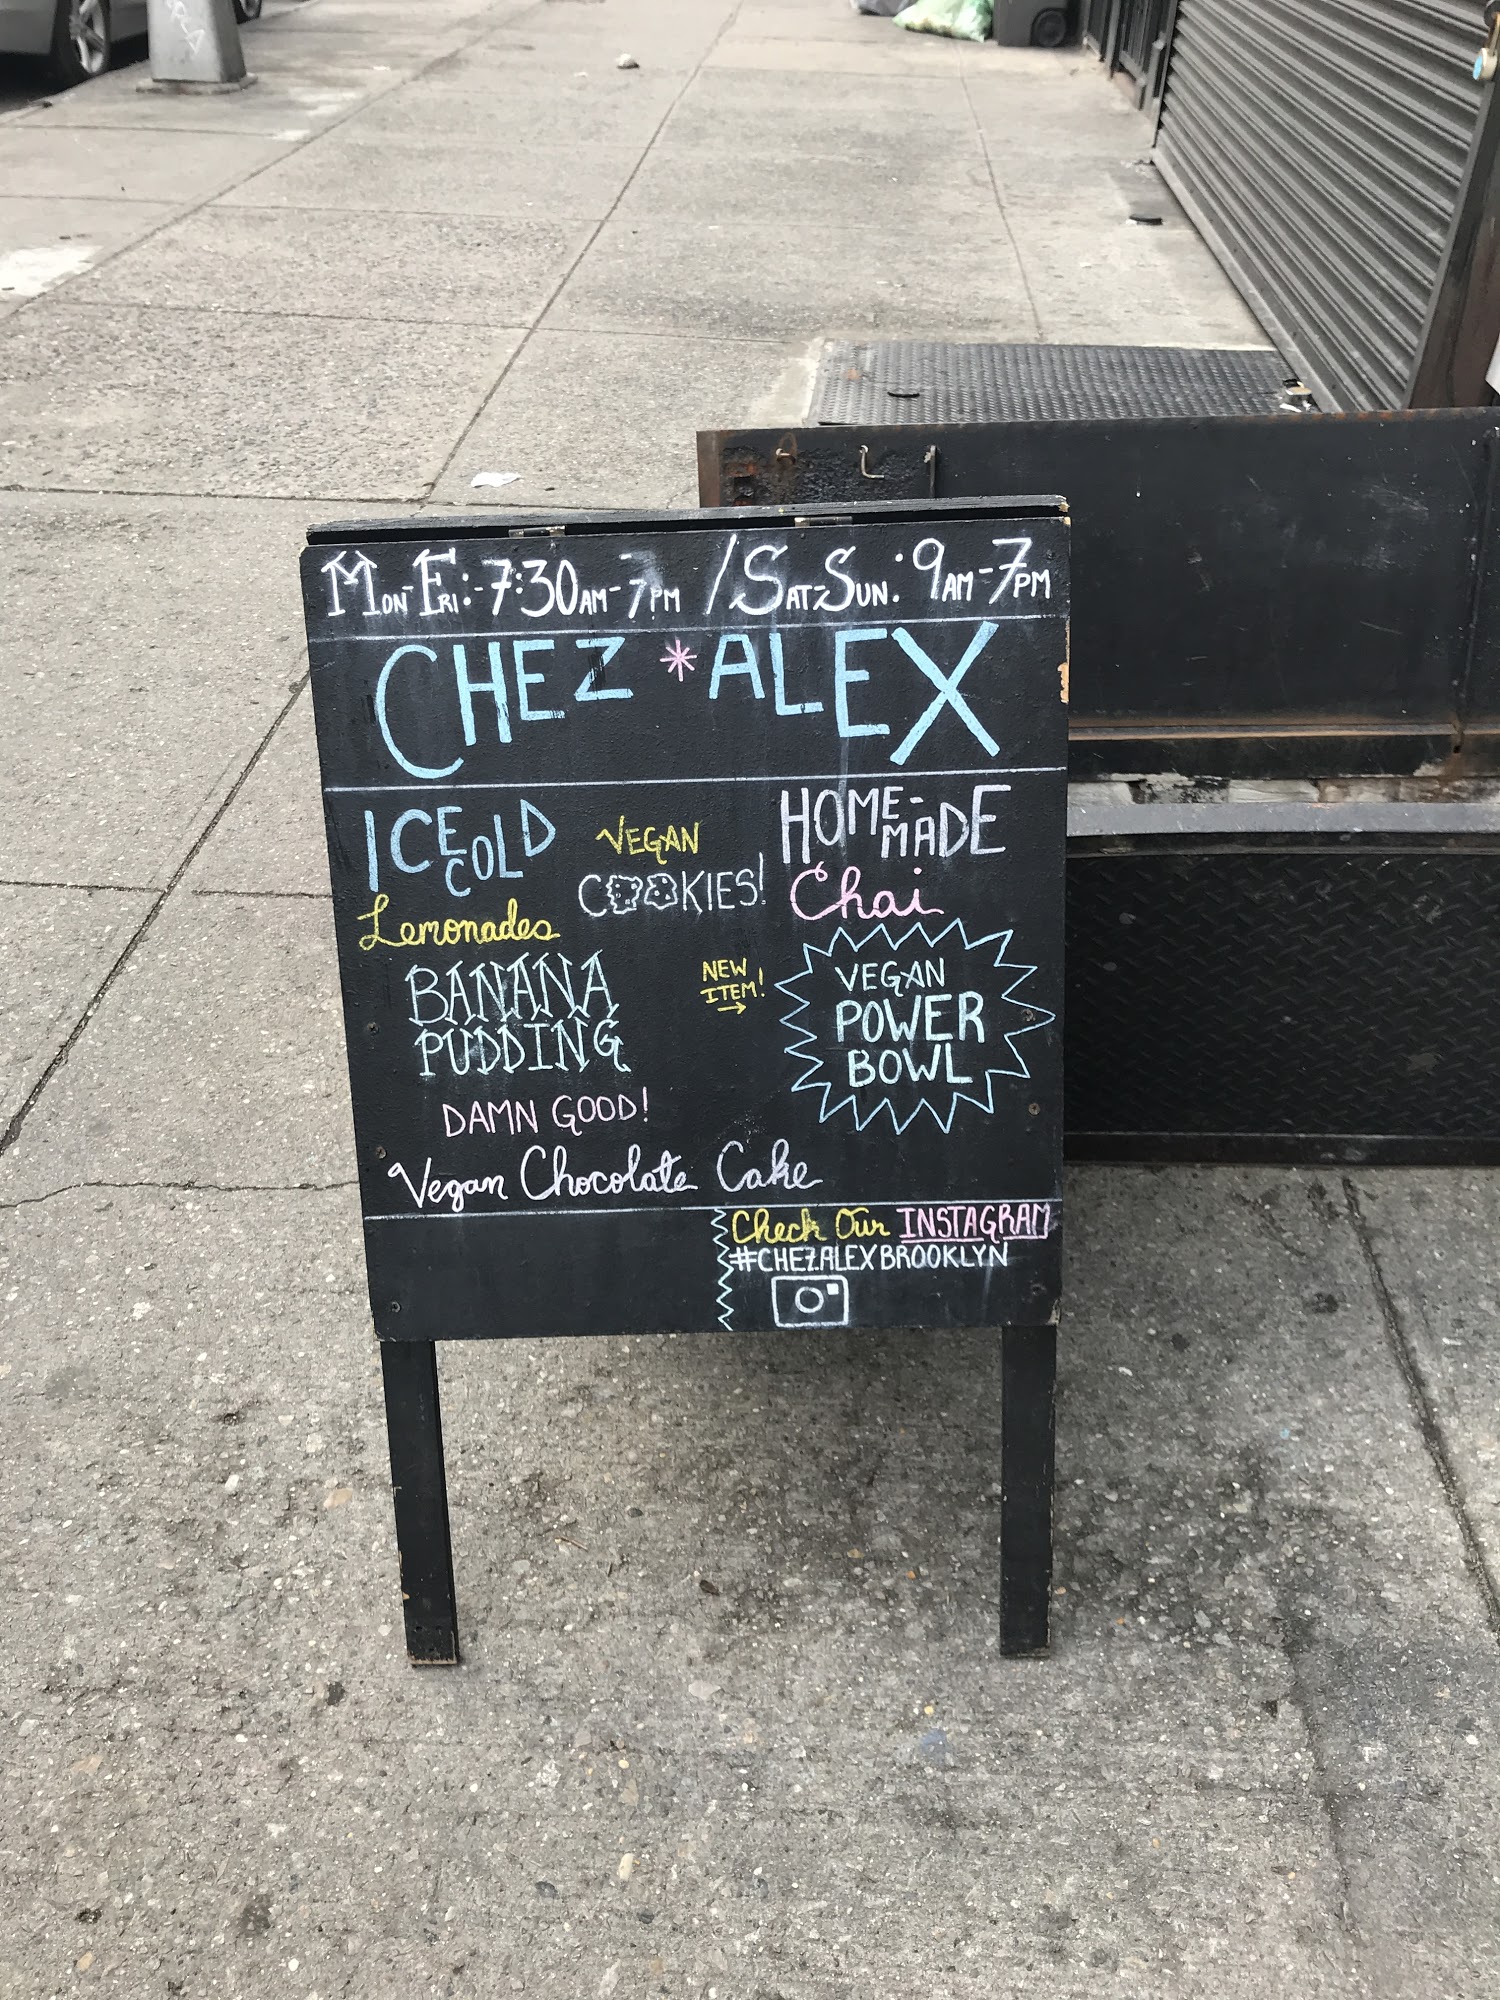 Mon-Fri:-7:30AM-7PM / SAT-SUN: 9AM-7PM
CHEZ * ALEX
ICE COLD
Lemonades
VEGAN
COOKIES!
HOME-MADE
Chai
BANANA
PUDDING
DAMN GOOD!
NEW
ITEM!
VEGAN
POWER
BOWL
Vegan Chocolate Cake
Check Our INSTAGRAM
#CHEZALEXBROOKLYN